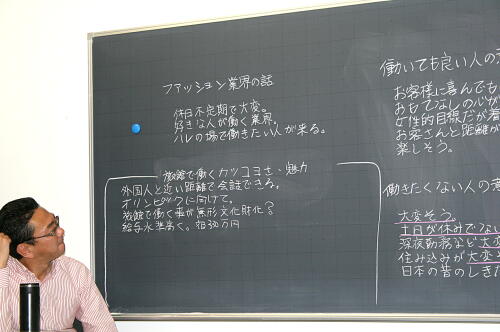 ファッション業界の話
休日不定期で大変。
好きな人が働く業界。
ハレの場で働きたい人が来る。
旅館で働くカッコヨさ、魅力
外国人と近い距離で会話できる。
オリンピックに向けて。
旅館で働く事が無形文化財化？
給与水準高く。初330万円
働いても良い人の意
お客様に喜んでも
おもてなしの心が
女性的目線だが着
お客さんと距離が
楽しそう。
働きたくない人の意
大変そう。
土日が休みでない
深夜勤務など大変
住み込みが大変そ
日本の昔のしきた